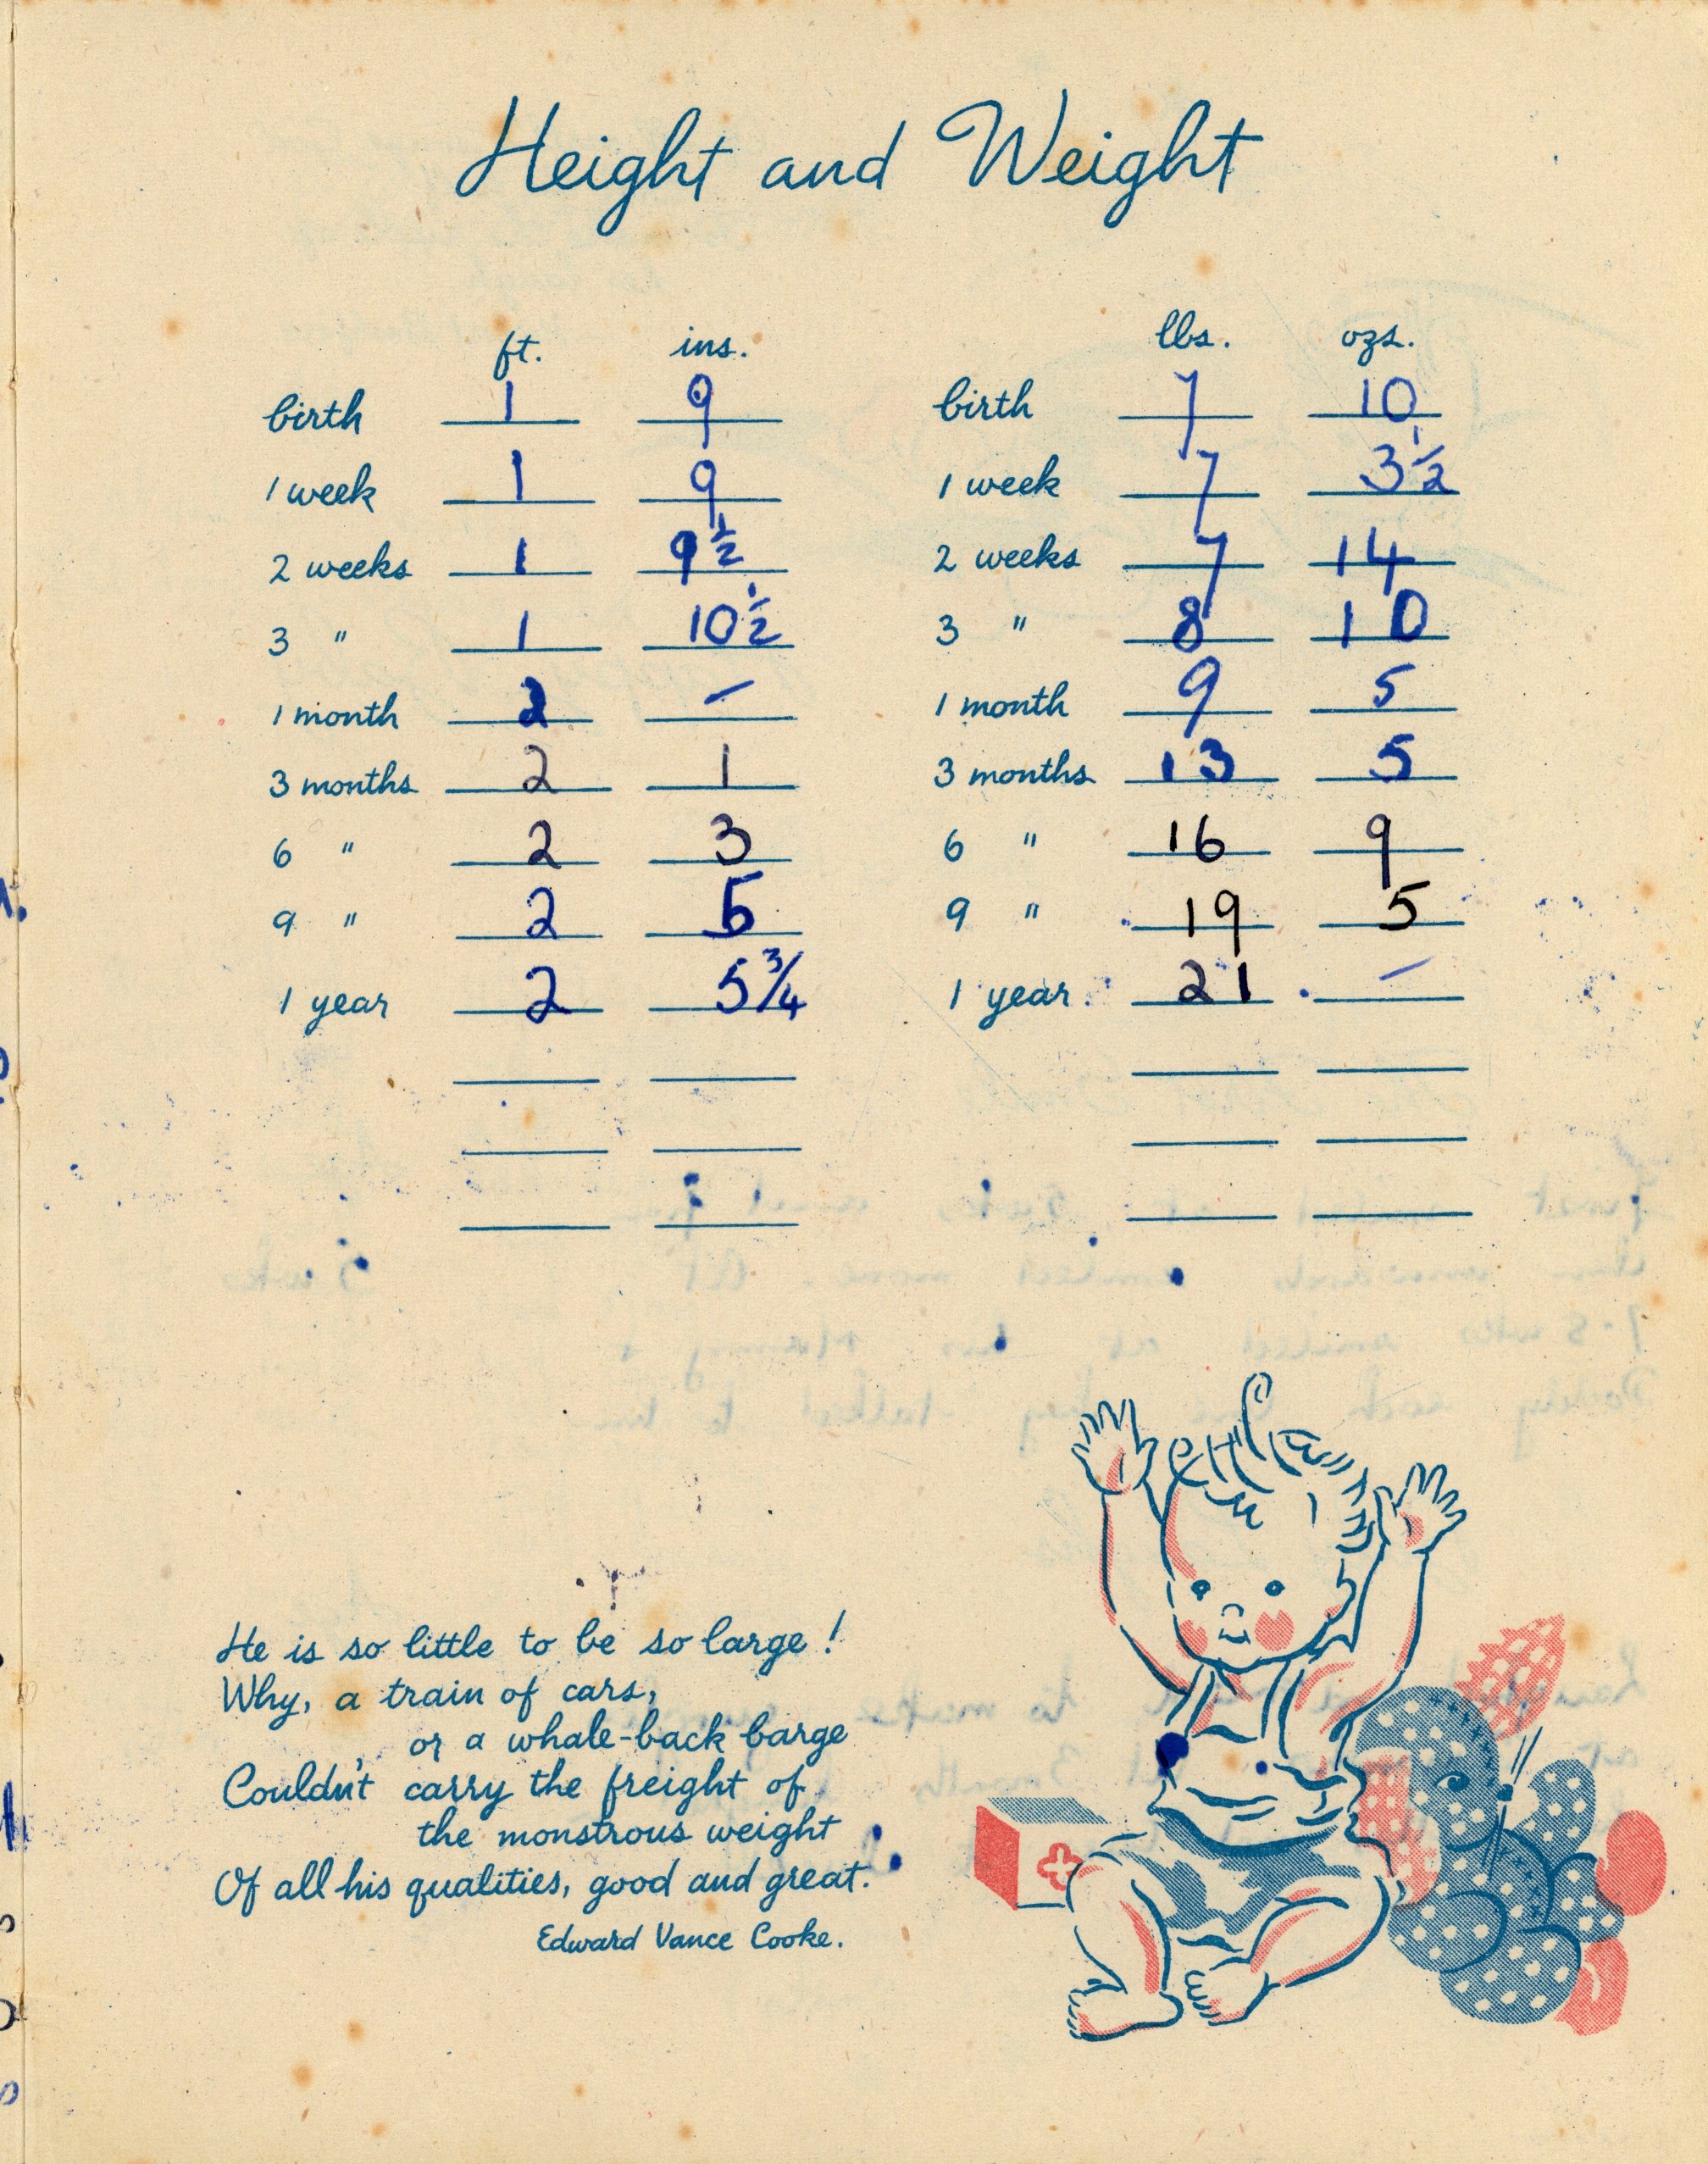 Height and Weight
ft. ins. lbs. ozs.
birth 1 9 birth 7 10
1 week 1 9 1 week 7 3 1/2
2 weeks 1 9 1/2 2 weeks 7 14
3 " 1 10 1/2 3 " 8 10
1 month 2 – 1 month 9 5
3 months 2 1 3 months 13 5
6 " 2 3 6 " 16 9
9 " 2 5 9 " 19 5
1 year 2 5 3/4 1 year 21 –
He is so little to be so large!
Why, a train of cars,
or a whale-back barge
Couldn't carry the freight of
the monstrous weight
Of all his qualities, good and great.
Edward Vance Cooke.